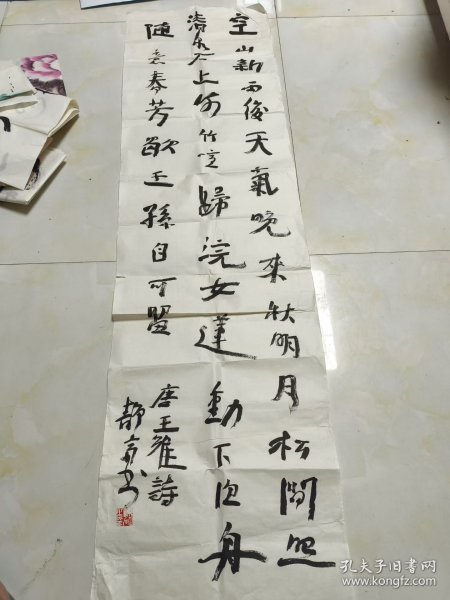 空山新雨後天氣晚來秋明月松間照
清泉石上流竹喧歸浣女蓮動下渔舟
随意春芳歇王孫自可留
唐王維詩
静 书
孔夫子旧书网
www.kongfz.com